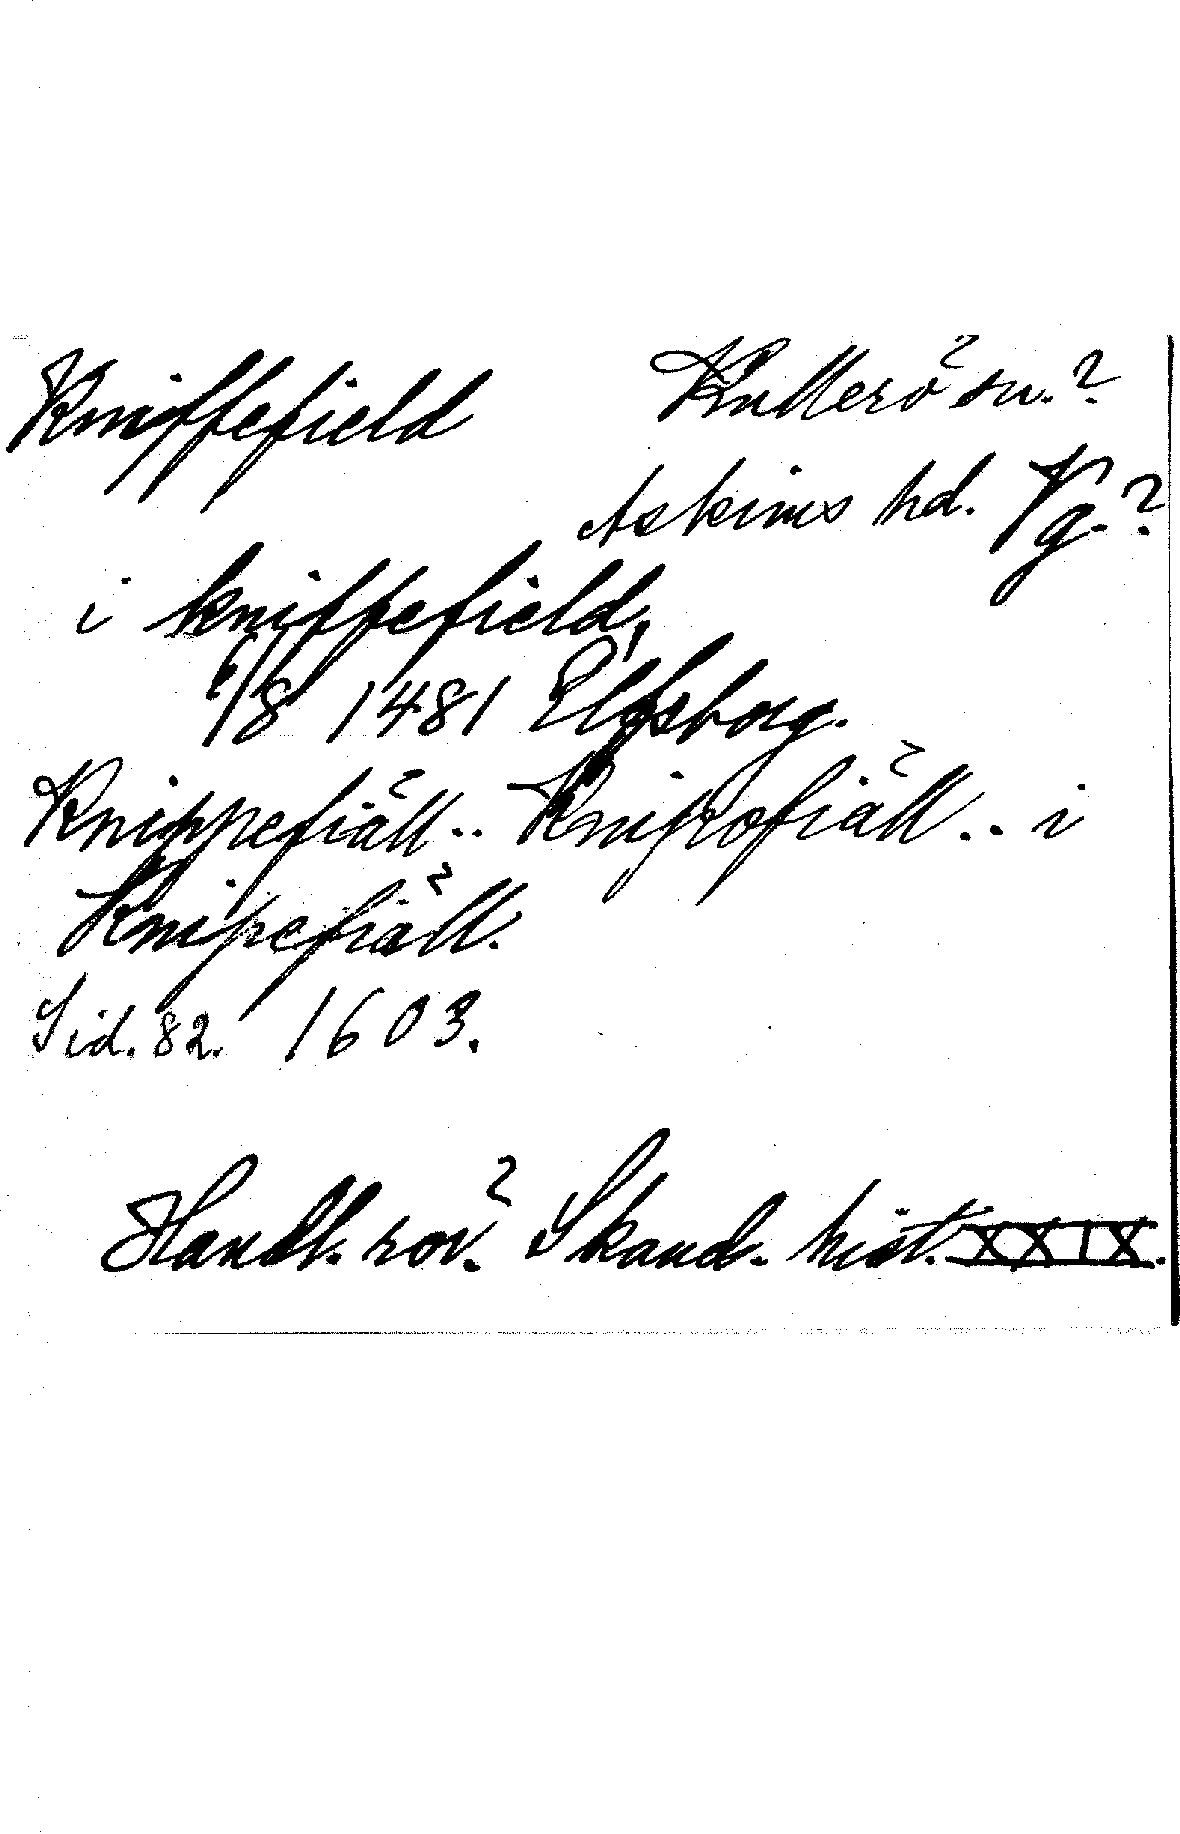 Kniffefield Kullerö sn.?
Askims hd. Vg.?
i kniffefield,
6/8 1481 Elfsborg.
Knippefiäll.. Knipofiäll.. i
Knipefiäll.
Sid. 82. 1603.
Handl. rör. Skand. hist. XXIX.